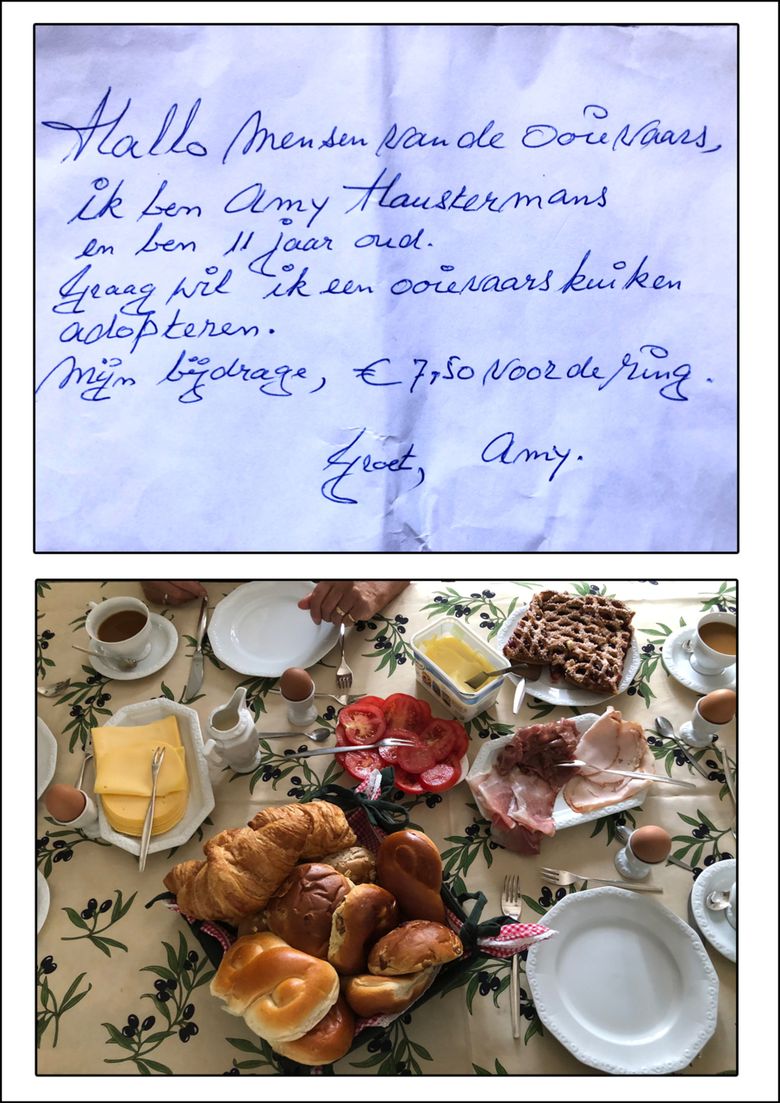 Hallo mensen van de ooievaars,
ik ben Amy Hauskermans
en ben 11 jaar oud.
Graag wil ik een ooievaarskuiken
adopteren.
Mijn bijdrage, € 7,50 voor de ring.
Groet, Amy.